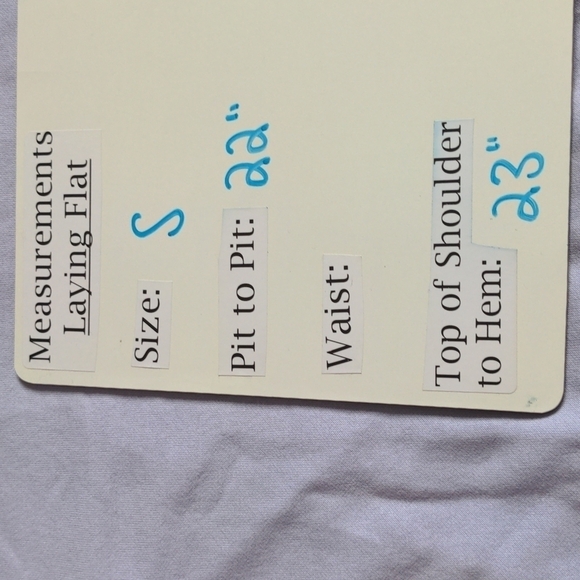 Measurements
Laying Flat
Size: S
Pit to Pit: 22"
Waist:
Top of Shoulder
to Hem: 23"